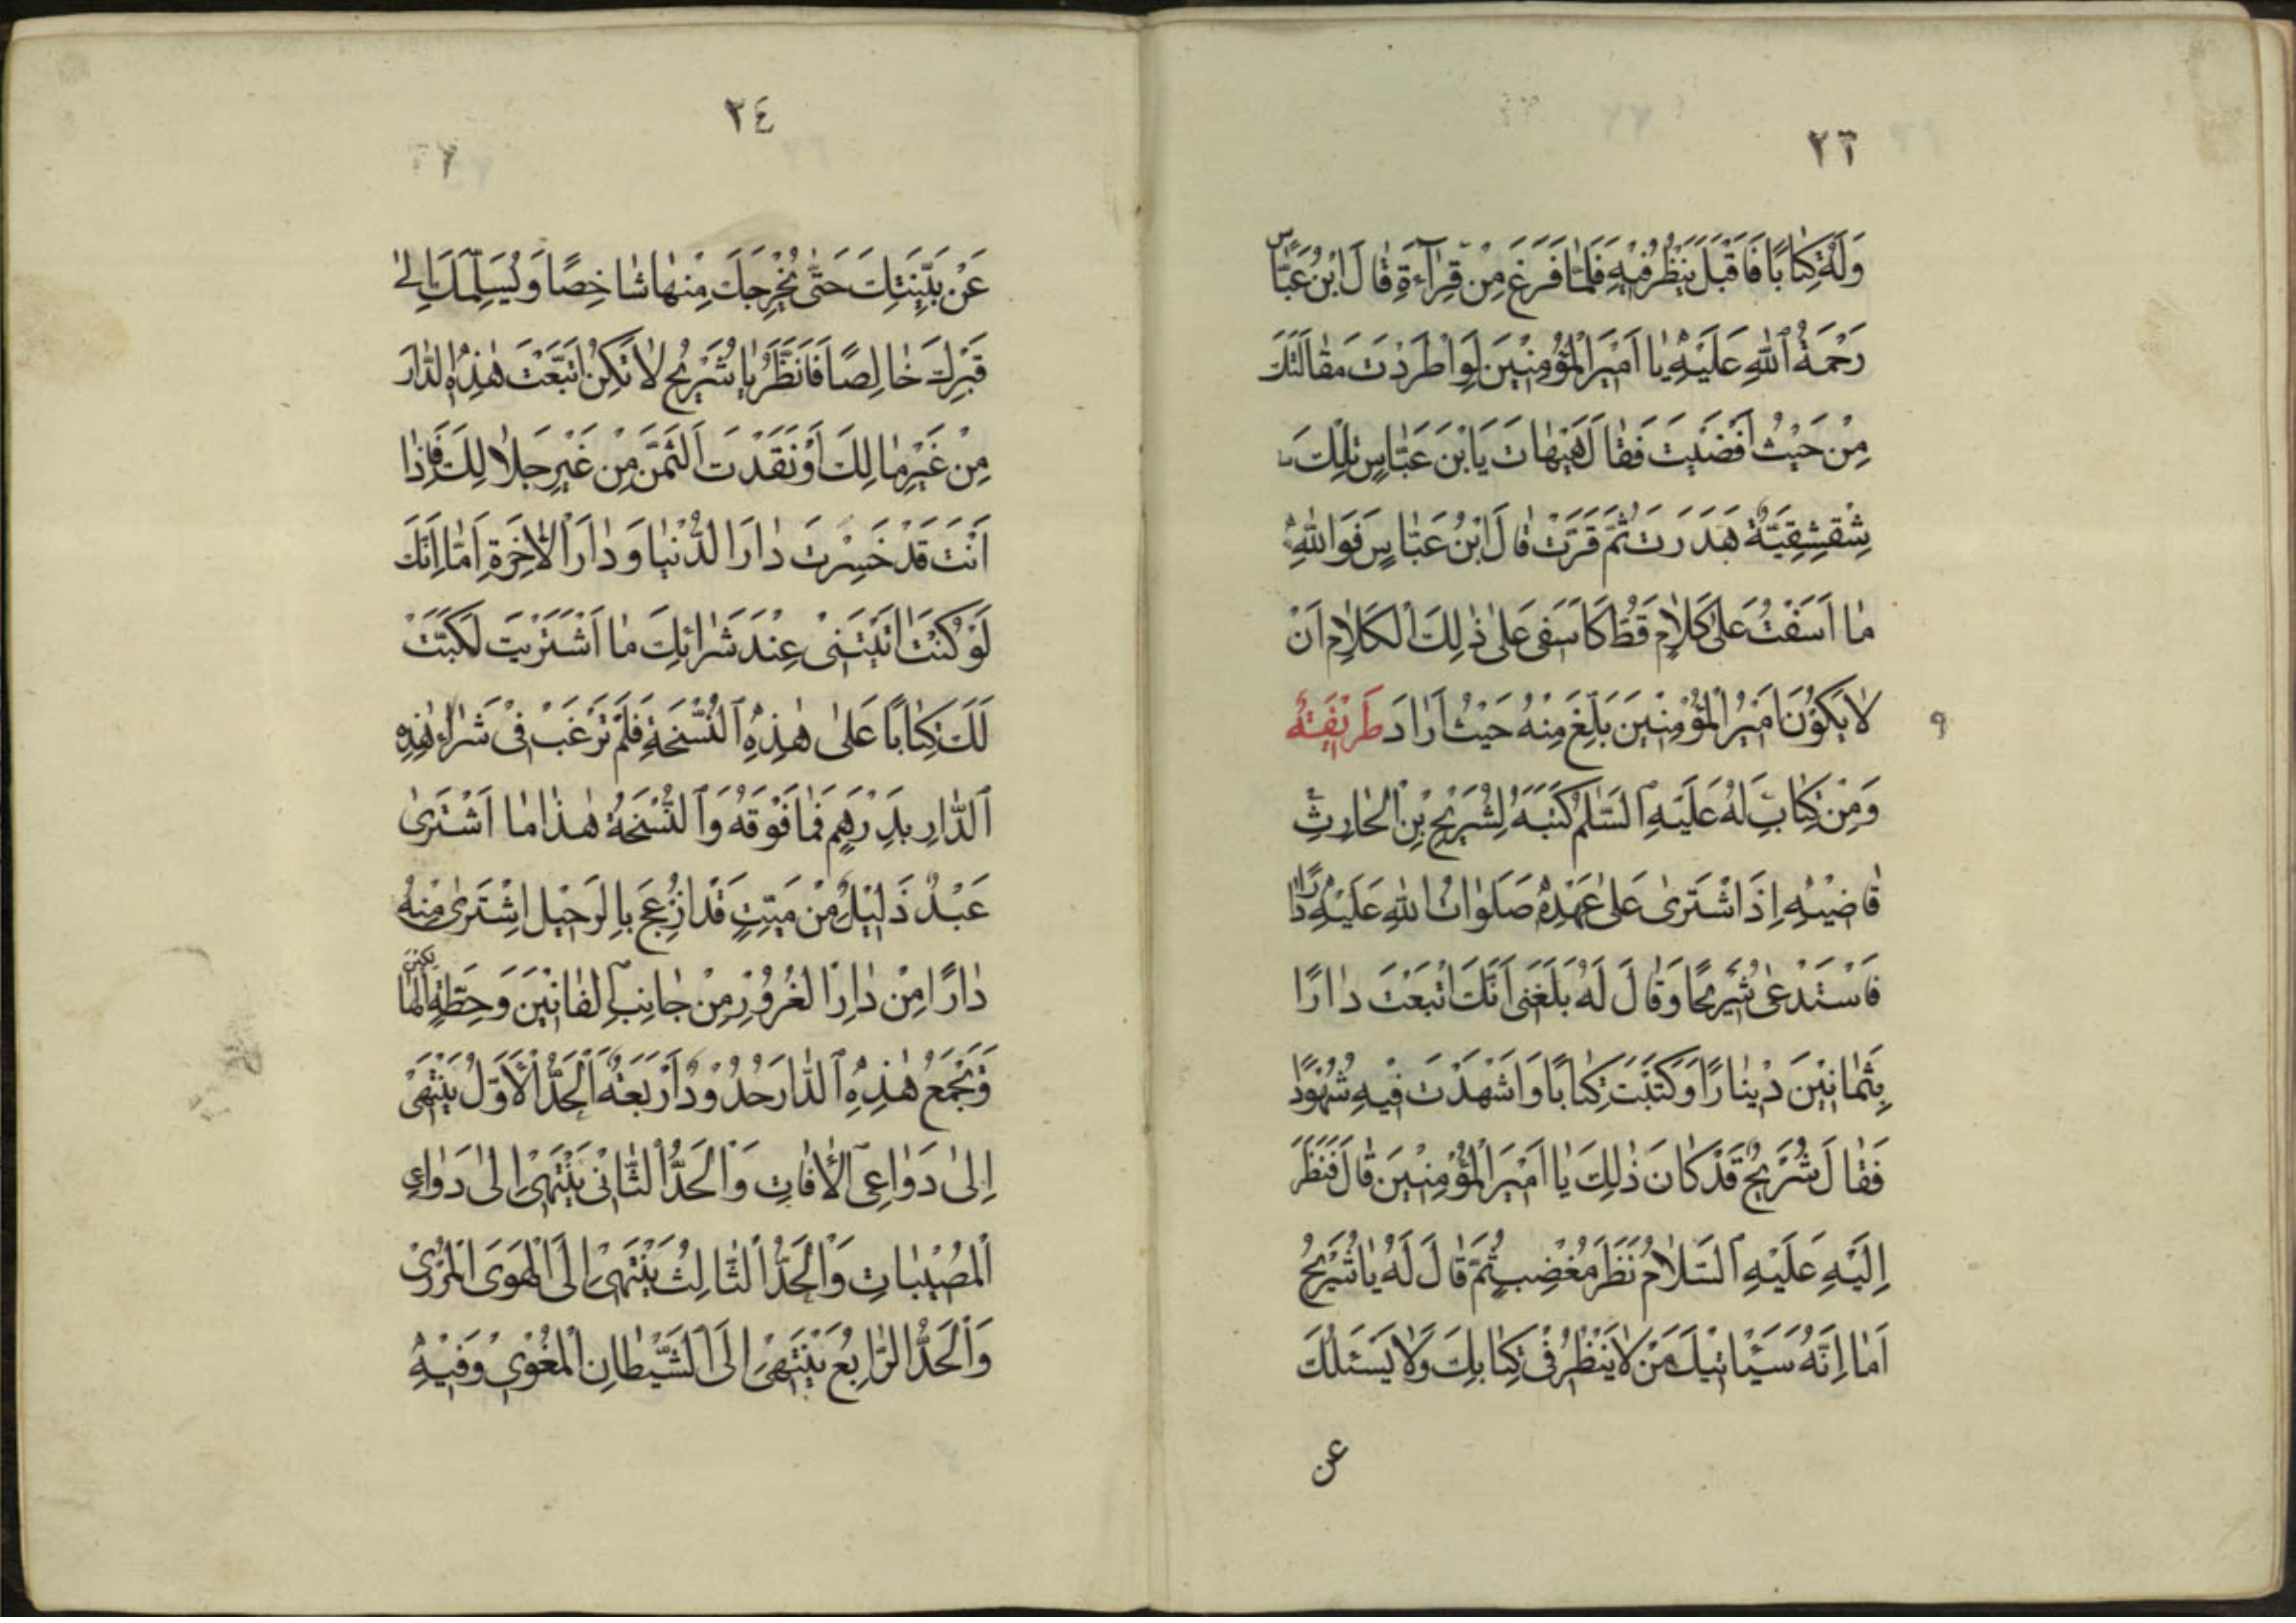 ٢٣
وَلَهُ كِتَابًا فَاَقْبَلَ يَنْظُرُ فِيْهِ فَلَمَّا فَرَغَ مِنْ قِرَآءَةِ قَالَ ابْنُ عَبَّاسٍ
رَحْمَةُ اللهِ عَلَيْهِ يَا اَمِيْرَ الْمُؤْمِنِيْنَ لَوِ اطَّرَدَتَ مَقَالَتَكَ
مِنْ حَيْثُ اَفْضَيْتَ فَقَالَ هَيْهَاتَ يَا ابْنَ عَبَّاسٍ تِلْكَ
شِقْشِقِيَّةٌ هَدَرَتْ ثُمَّ قَرَّتْ قَالَ ابْنُ عَبَّاسٍ فَوَاللهِ
مَا اَسَفْتُ عَلَى كَلَامٍ قَطُّ كَاَسَفِى عَلَى ذٰلِكَ الْكَلَامِ اَنْ
لَا يَكُوْنَ اَمِيْرُ الْمُؤْمِنِيْنَ بَلَغَ مِنْهُ حَيْثُ اَرَادَ طَرِيْفَتُهُ
٩
وَمِنْ كِتَابٍ لَهُ عَلَيْهِ السَّلَمُ كَتَبَهُ لِشُرَيْحِ بْنِ الْحَارِثِ
قَاضِيْهِ اِذَ اشْتَرَى عَلَى عَهْدِهِ صَلَوَاتُ اللهِ عَلَيْهِ دَارًا
فَاسْتَدْعَى شُرَيْحًا وَقَالَ لَهُ بَلَغَنِى اَنَّكَ اتْبَعْتَ دَارًا
بِثَمَانِيْنَ دِيْنَارًا وَكَتَبْتَ كِتَابًا وَاَشْهَدْتَ فِيْهِ شُهُوْدًا
فَقَالَ شُرَيْحٌ قَدْ كَانَ ذٰلِكَ يَا اَمِيْرَ الْمُؤْمِنِيْنَ قَالَ فَنَظَرَ
اِلَيْهِ عَلَيْهِ السَّلَامُ نَظَرَ مُغْضِبٍ ثُمَّ قَالَ لَهُ يَا شُرَيْحُ
اَمَا اِنَّهُ سَيَاْتِيْكَ مَنْ لَا يَنْظُرُ فِى كِتَابِكَ وَلَا يَسْئَلُكَ
عن
٢٤
عَنْ بَيِّنَتِكَ حَتّٰى يُخْرِجَكَ مِنْهَا شَاخِصًا وَيُسَلِّمَكَ اِلٰى
قَبْرِكَ خَالِصًا فَانْظُرْ يَا شُرَيْحُ لَا تَكُنْ اتَبَّعْتَ هٰذِهِ الدَّارَ
مِنْ غَيْرِ مَالِكَ اَوْ نَقَدْتَ الثَّمَنَ مِنْ غَيْرِ حَلَالِكَ فَاِذَا
اَنْتَ قَدْ خَسِرْتَ دَارَ الدُّنْيَا وَدَارَ الْاٰخِرَةِ اَمَا اِنَّكَ
لَوْ كُنْتَ اَتَيْتَنِىْ عِنْدَ شَرَائِكَ مَا اشْتَرَيْتَ لَكَتَبْتُ
لَكَ كِتَابًا عَلَى هٰذِهِ النُّسْخَةِ فَلَمْ تَرْغَبْ فِى شَرَاءِ هٰذِهِ
الدَّارِ بِدِرْهَمٍ فَمَا فَوْقَهُ وَالنُّسْخَةُ هٰذَا مَا اشْتَرَى
عَبْدٌ ذَلِيْلٌ مِنْ مَيِّتٍ قَدْ اُزْعِجَ بِالرَّحِيْلِ اِشْتَرَى مِنْهُ
دَارًا مِنْ دَارِ الْغُرُوْرِ مِنْ جَانِبِ الْفَانِيْنَ وَحِطَّةِ الْهَالِكِيْنَ
وَتَجْمَعُ هٰذِهِ الدَّارَ حُدُوْدٌ اَرْبَعَةٌ اَلْحَدُّ الْاَوَّلُ يَنْتَهِىْ
اِلٰى دَوَاعِى الْاٰفَاتِ وَالْحَدُّ الثَّانِىْ يَنْتَهِىْ اِلٰى دَوَاعِى
الْمُصِيْبَاتِ وَالْحَدُّ الثَّالِثُ يَنْتَهِىْ اِلَى الْهَوَى الْمُرْدِىْ
وَالْحَدُّ الرَّابِعُ يَنْتَهِىْ اِلَى الشَّيْطَانِ الْمُغْوِىْ وَفِيْهِ